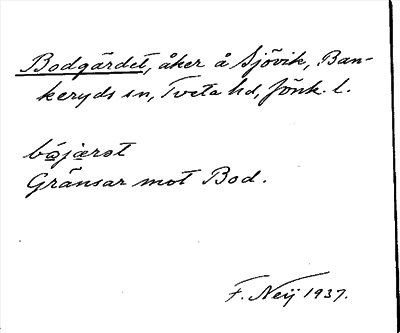 Bodgärdet, åker å Sjövik, Ban-
keryds sn, Tveta hd, Jönk. l.
bǫjærət
Gränsar mot Bod.
F. Neij 1937.